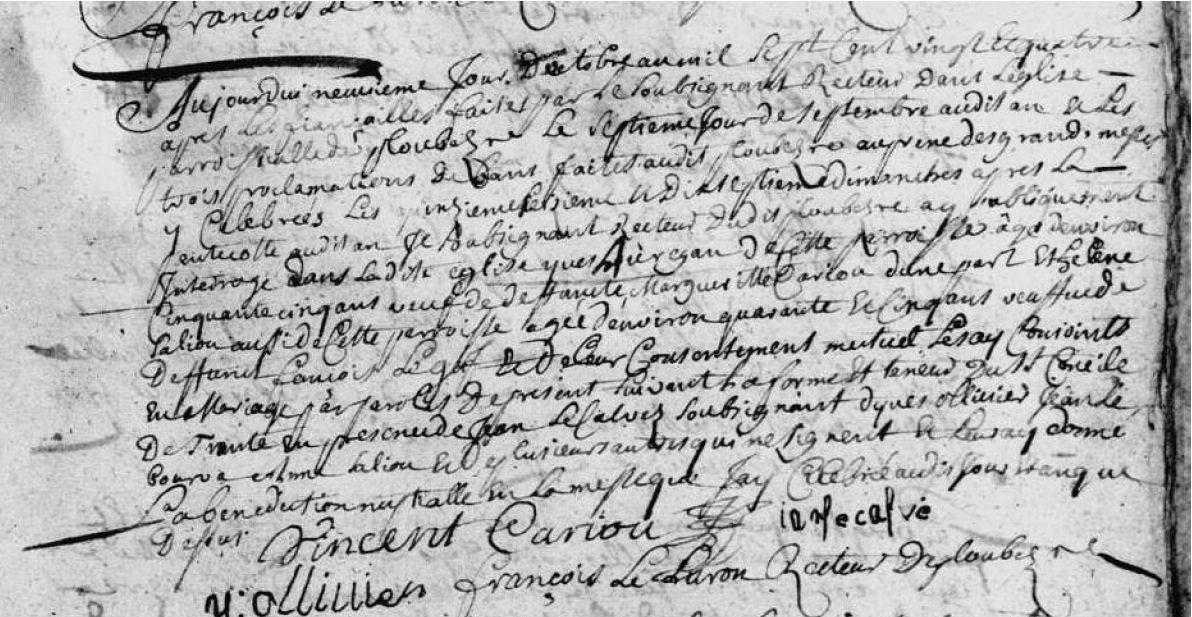 François Le
Aujourdui neufvieme Jour Doctobre au mil Sept Cent vingt Et quatre
apres Les fiancailles faites par Le Soubsignant Recteur Dans Leglise
parroissialle de ploubezre Le Septieme Jour de Septembre audit an Et Les
trois proclamations De bans faites audit ploubezre au prone des grands messes
y Celebrées Les quinzieme Seizieme et Dixseptieme dimanches apres La
pentecotte audit an Je Soubsignant Recteur Dudit ploubezre ay publiquement
Interroge dans Ladite eglise yves de Cette perroisse âgé denviron
Cinquante cinq ans veuf de deffuncte Margueritte Cariou dune part Et helene
Saliou aussi de Cette perroisse agee denviron quarante Et Cinq ans veuffve de
Deffunct francois Le Et De Leur Consentement mutuel Les ay Conjoints
En Mariage par paroles De present Suivant La forme Et teneur Du St Concile
De Trante En presence de Jean Le Calvez Soubsignant Dyves ollivier Jean Le
Saliou Et De plusieurs autres qui ne Signent Et Leur ay donné
La benediction nuptialle En La messe que Jay Celebré audit Jour Et an que
Dessus Vincent Cariou ian le calve
y: ollivier François Le Luron Recteur De ploubezre